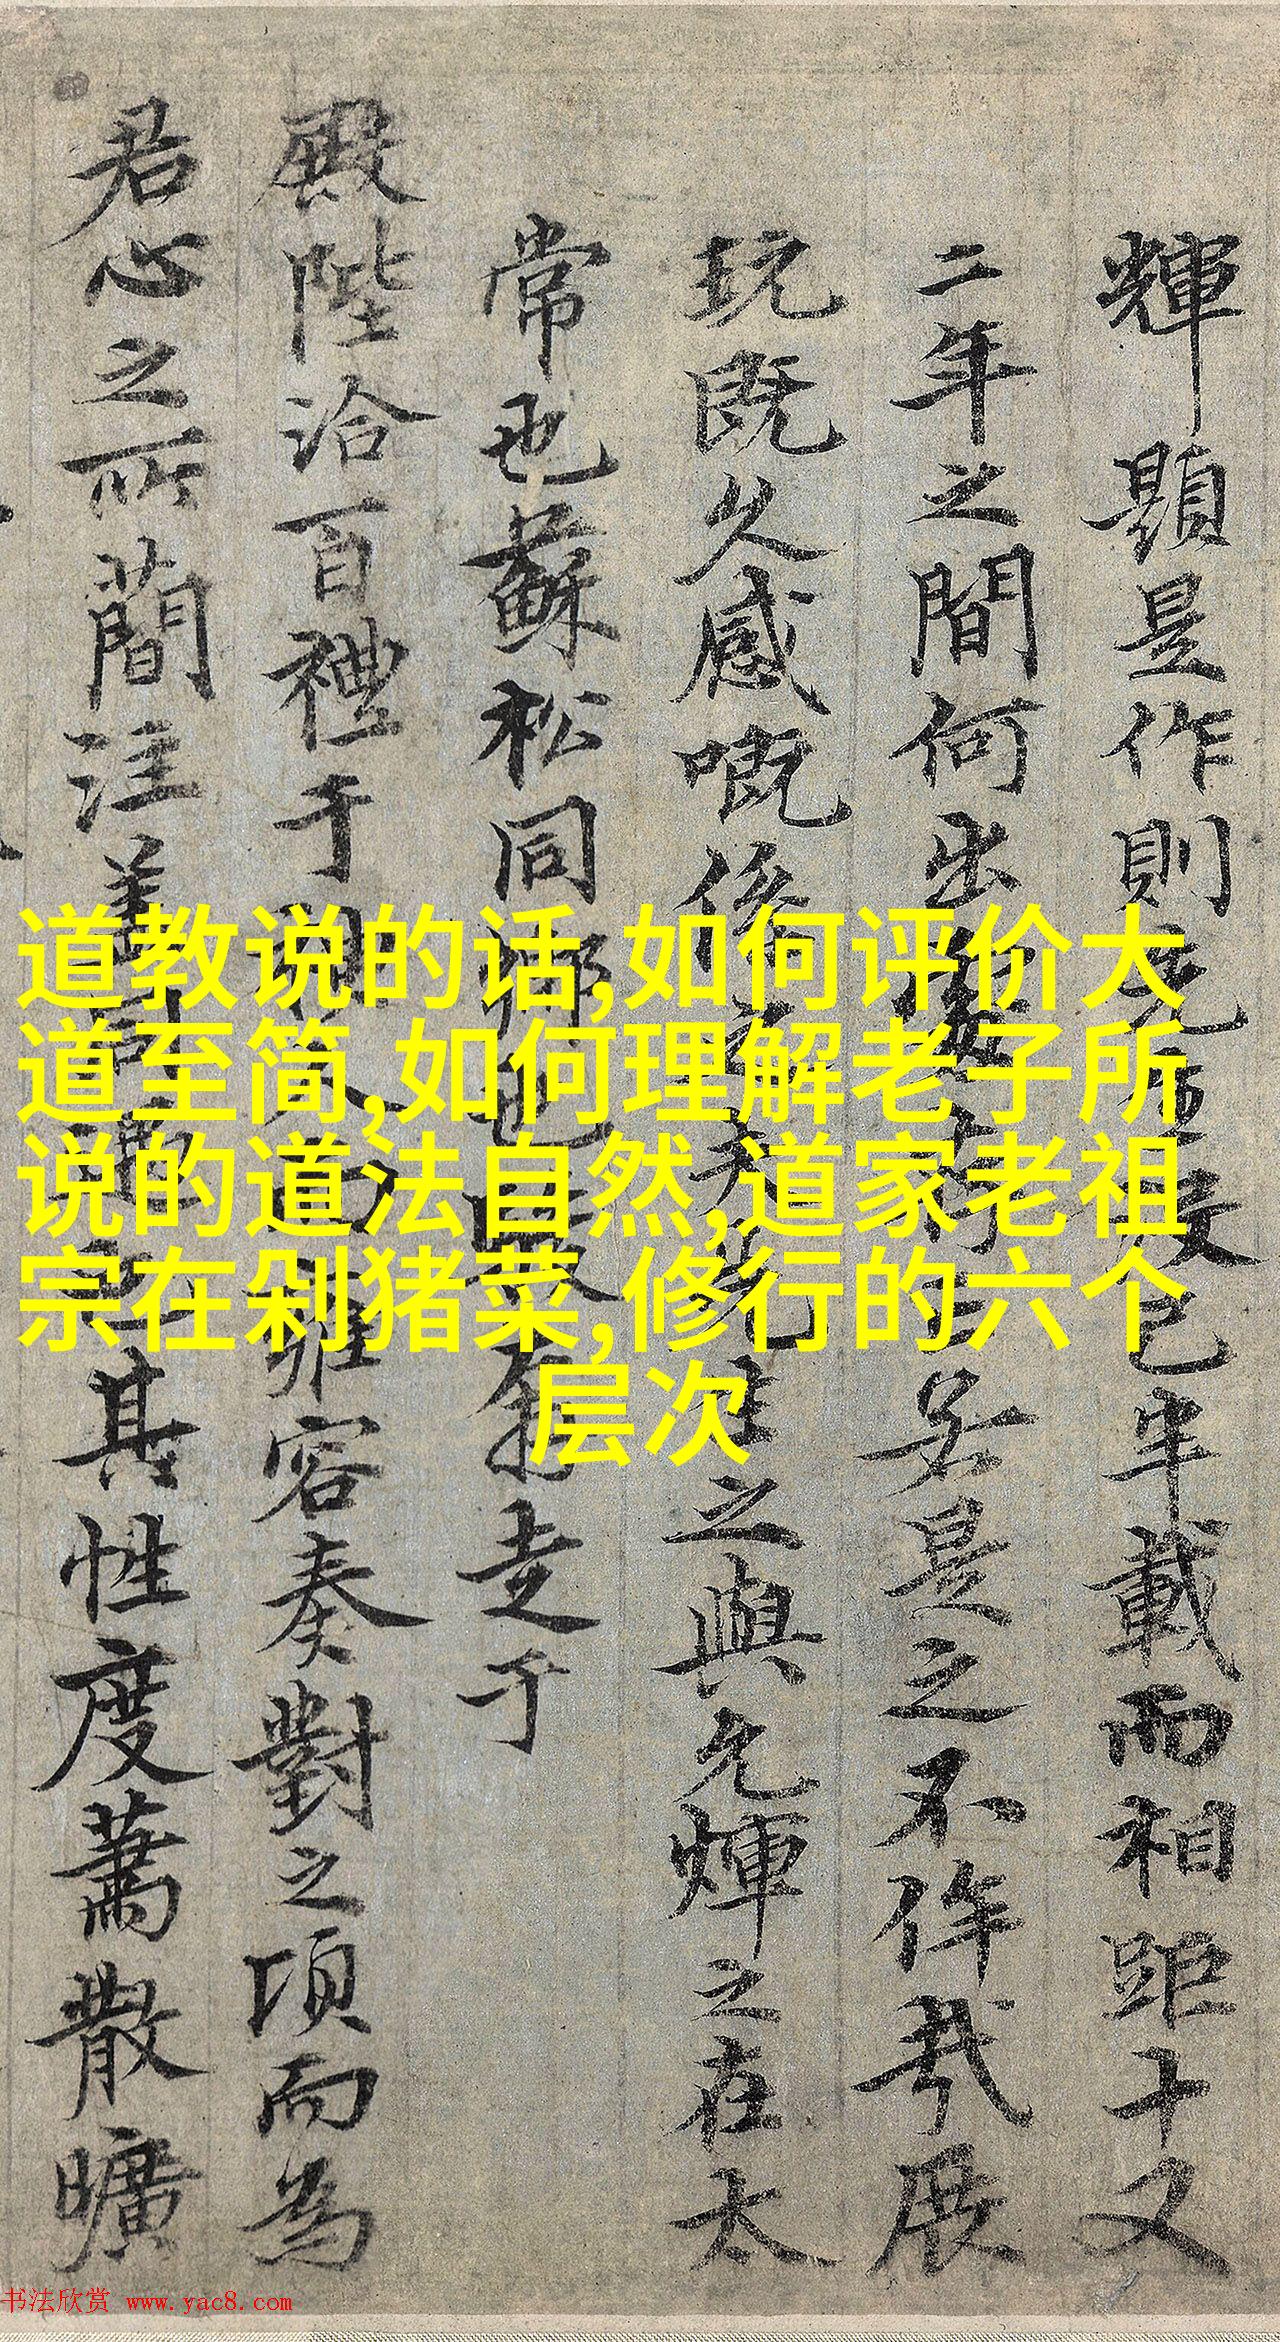 輝題是作則先一還已半載而相距十又
二年之間何出處之若是之不侔哉展
玩既久感嘅係之之與允煇之在太
常也蘇松同鄉也走于
殿陛洽百禮于雍容奏對之頃而為
君心之所蕳注其性度蕭散曠
道教说的话,如何评价大
道至简,如何理解老子所
说的道法自然,道家老祖
宗在剁猪菜,修行的六个
层次
书法欣赏 www.yac8.com